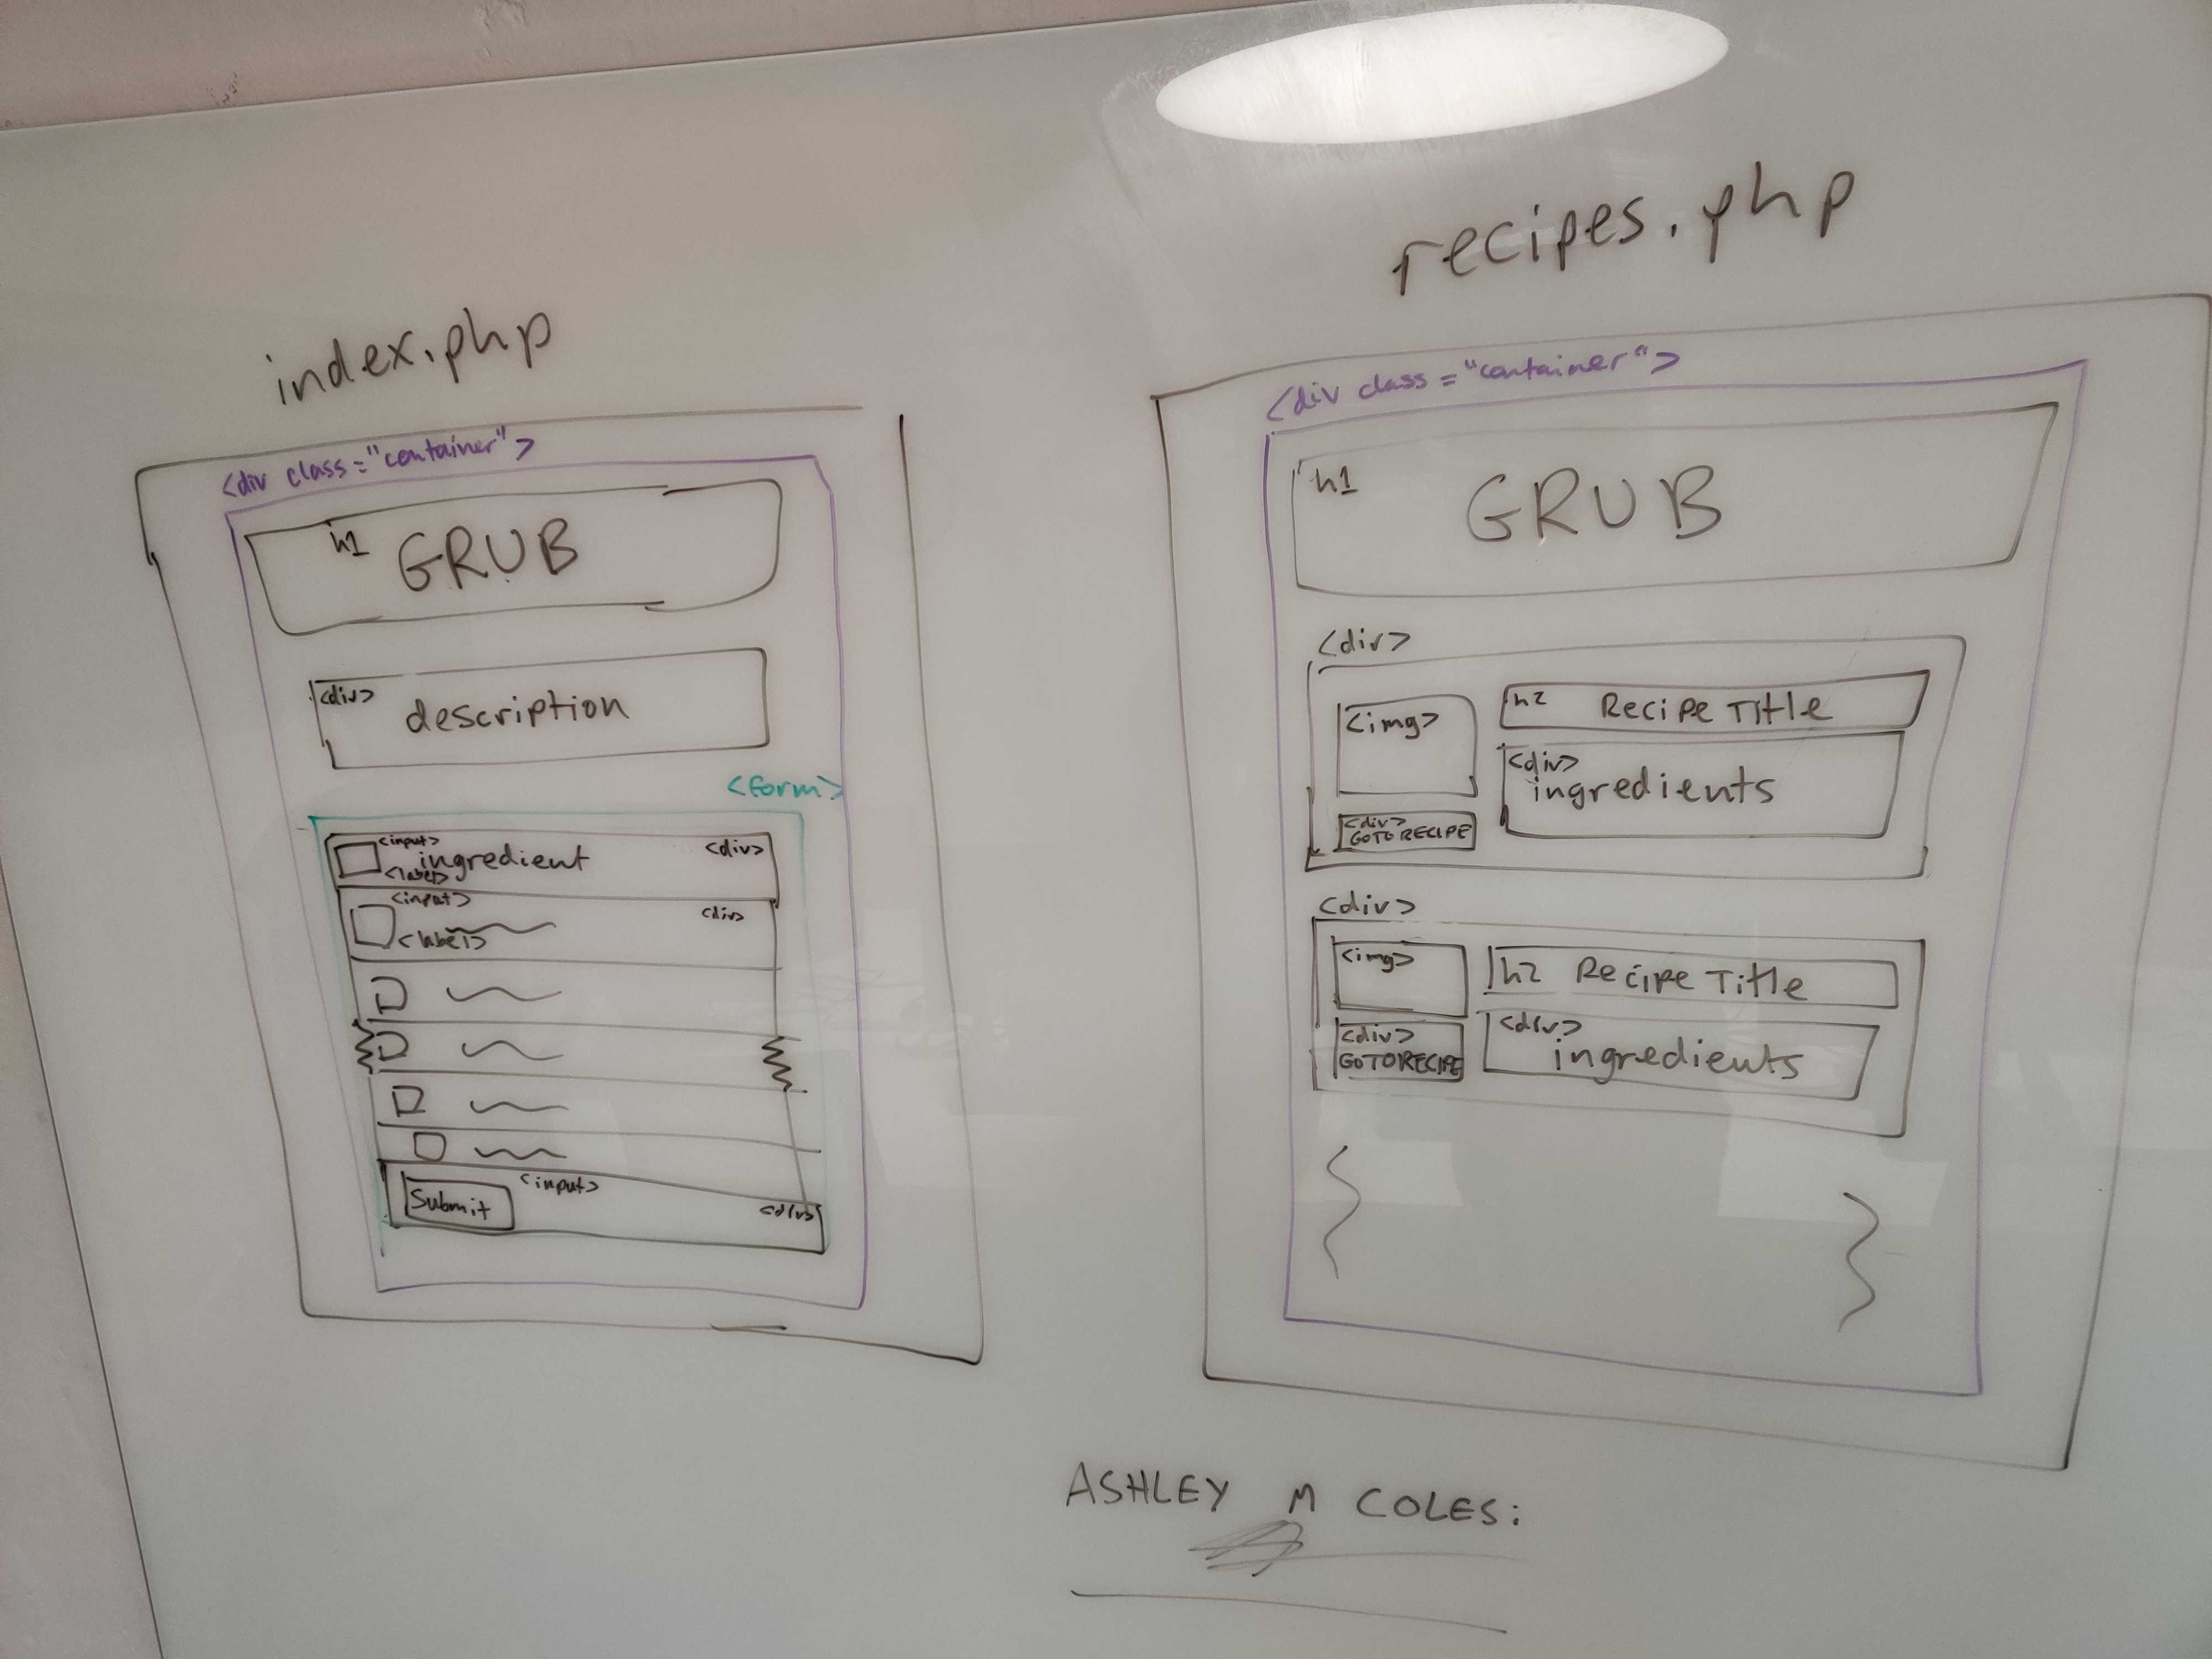 index.php
<div class="container">
h1 GRUB
<div> description
<form>
<input>
ingredient <div>
<label>
<input>
<div>
<label>
Submit <input>
<div>
recipes.php
<div class="container">
h1 GRUB
<div>
<img> h2 Recipe Title
<div>
ingredients
<div>
GOTO RECIPE
<div>
<img> h2 Recipe Title
<div>
ingredients
<div>
GOTO RECIPE
ASHLEY M COLES: